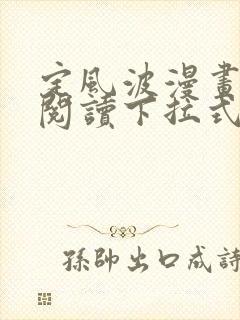 定風波漫畫
閱讀下拉式
孫帥出口成詩